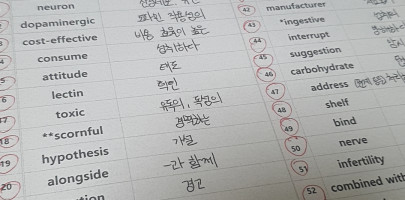 neuron
dopaminergic 도파민 작동성의
cost-effective 비용 효율이 높은
consume 섭취하다
attitude 태도
lectin 렉틴
6 toxic 유독의, 독성의
17 **scornful 경멸하는
18 hypothesis 가설
19 alongside ~와 함께
20 경고
42 manufacturer
43 *ingestive
44 interrupt
45 suggestion
46 carbohydrate
47 address
48 shelf
49 bind
50 nerve
51 infertility
52 combined with